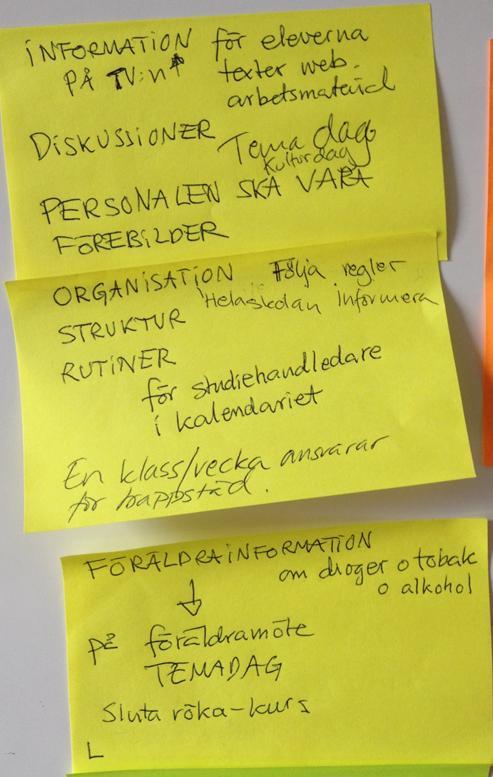 INFORMATION för eleverna
PÅ TV:n texter web-
arbetsmaterial
DISKUSSIONER Tema dag
Kulturdag
PERSONALEN SKA VARA
FÖREBILDER
ORGANISATION Följa regler
STRUKTUR Helaskolan informera
RUTINER
för studiehandledare
i kalendariet
En klass/vecka ansvarar
för trappstäd.
FÖRÄLDRAINFORMATION
om droger o tobak
o alkohol
↓
på föräldramöte
TEMADAG
Sluta röka-kurs
L